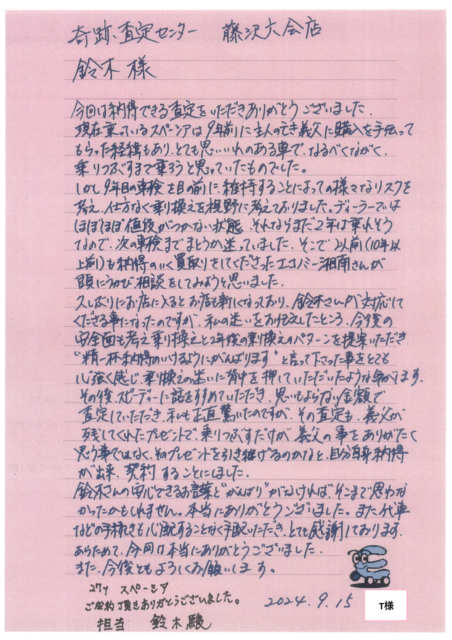 奇跡、査定センター 藤沢大会店
鈴木様
今回は納得できる査定をいただきありがとうございました。
現在乗っているスペーシアは9年前に主人の亡き義父に購入を手伝って
もらった経緯もあり、とても思いいれのある車で、なるべくながく、
乗りつぶすまで乗ろうと思っていたものでした。
しかし9年目の車検を目の前に、維持することによっての様々なリスクを
考え、仕方なく乗り換えを視野に考えておりました。ディーラーでは
ほぼほぼ値段がつかない状態、それならまだ2年は乗れそう
なので、次の車検までまとうか迷っていました。そこで以前(10年以
上前)も納得のいく買取りをしてくださったエコノミー湘南さんが
頭にうかび相談をしてみようと思いました。
久しぶりにお店に入るとお店も新しくなっており、鈴木さんが対応して
くださる事になったのですが、私の迷いをお伝えしたところ、今後の
安全面も考え乗り換えと2年後の乗り換えのパターンを提案いただき
"精一杯納得のいけるようにがんばります"と言って下さった事をとても
心強く感じ、乗り換えの迷いに背中を押していただいたような気がします。
その後、スピーディーに話を進めていただき、思いもよらない金額で
査定していただき、私も正直驚いたのですが、その査定も、義父が
残してくれたプレゼントで、乗りつぶすだけが義父の事をありがたく
思う事ではなく、そのプレゼントを引き継げるのかなと、自分自身納得
が出来、契約することにしました。
鈴木さんの安心できるお言葉と"がんばり"がなければ、そこまで思わな
かったかもしれません。本当にありがとうございました。また代車
などの手続きも心配することなく手配いただき、とても感謝しております。
あらためて、今回は本当にありがとうございました。
また、今後ともよろしくお願いします。
スペーシア
ご契約頂きありがとうございました。
担当 鈴木駿
2024.9.15
T様